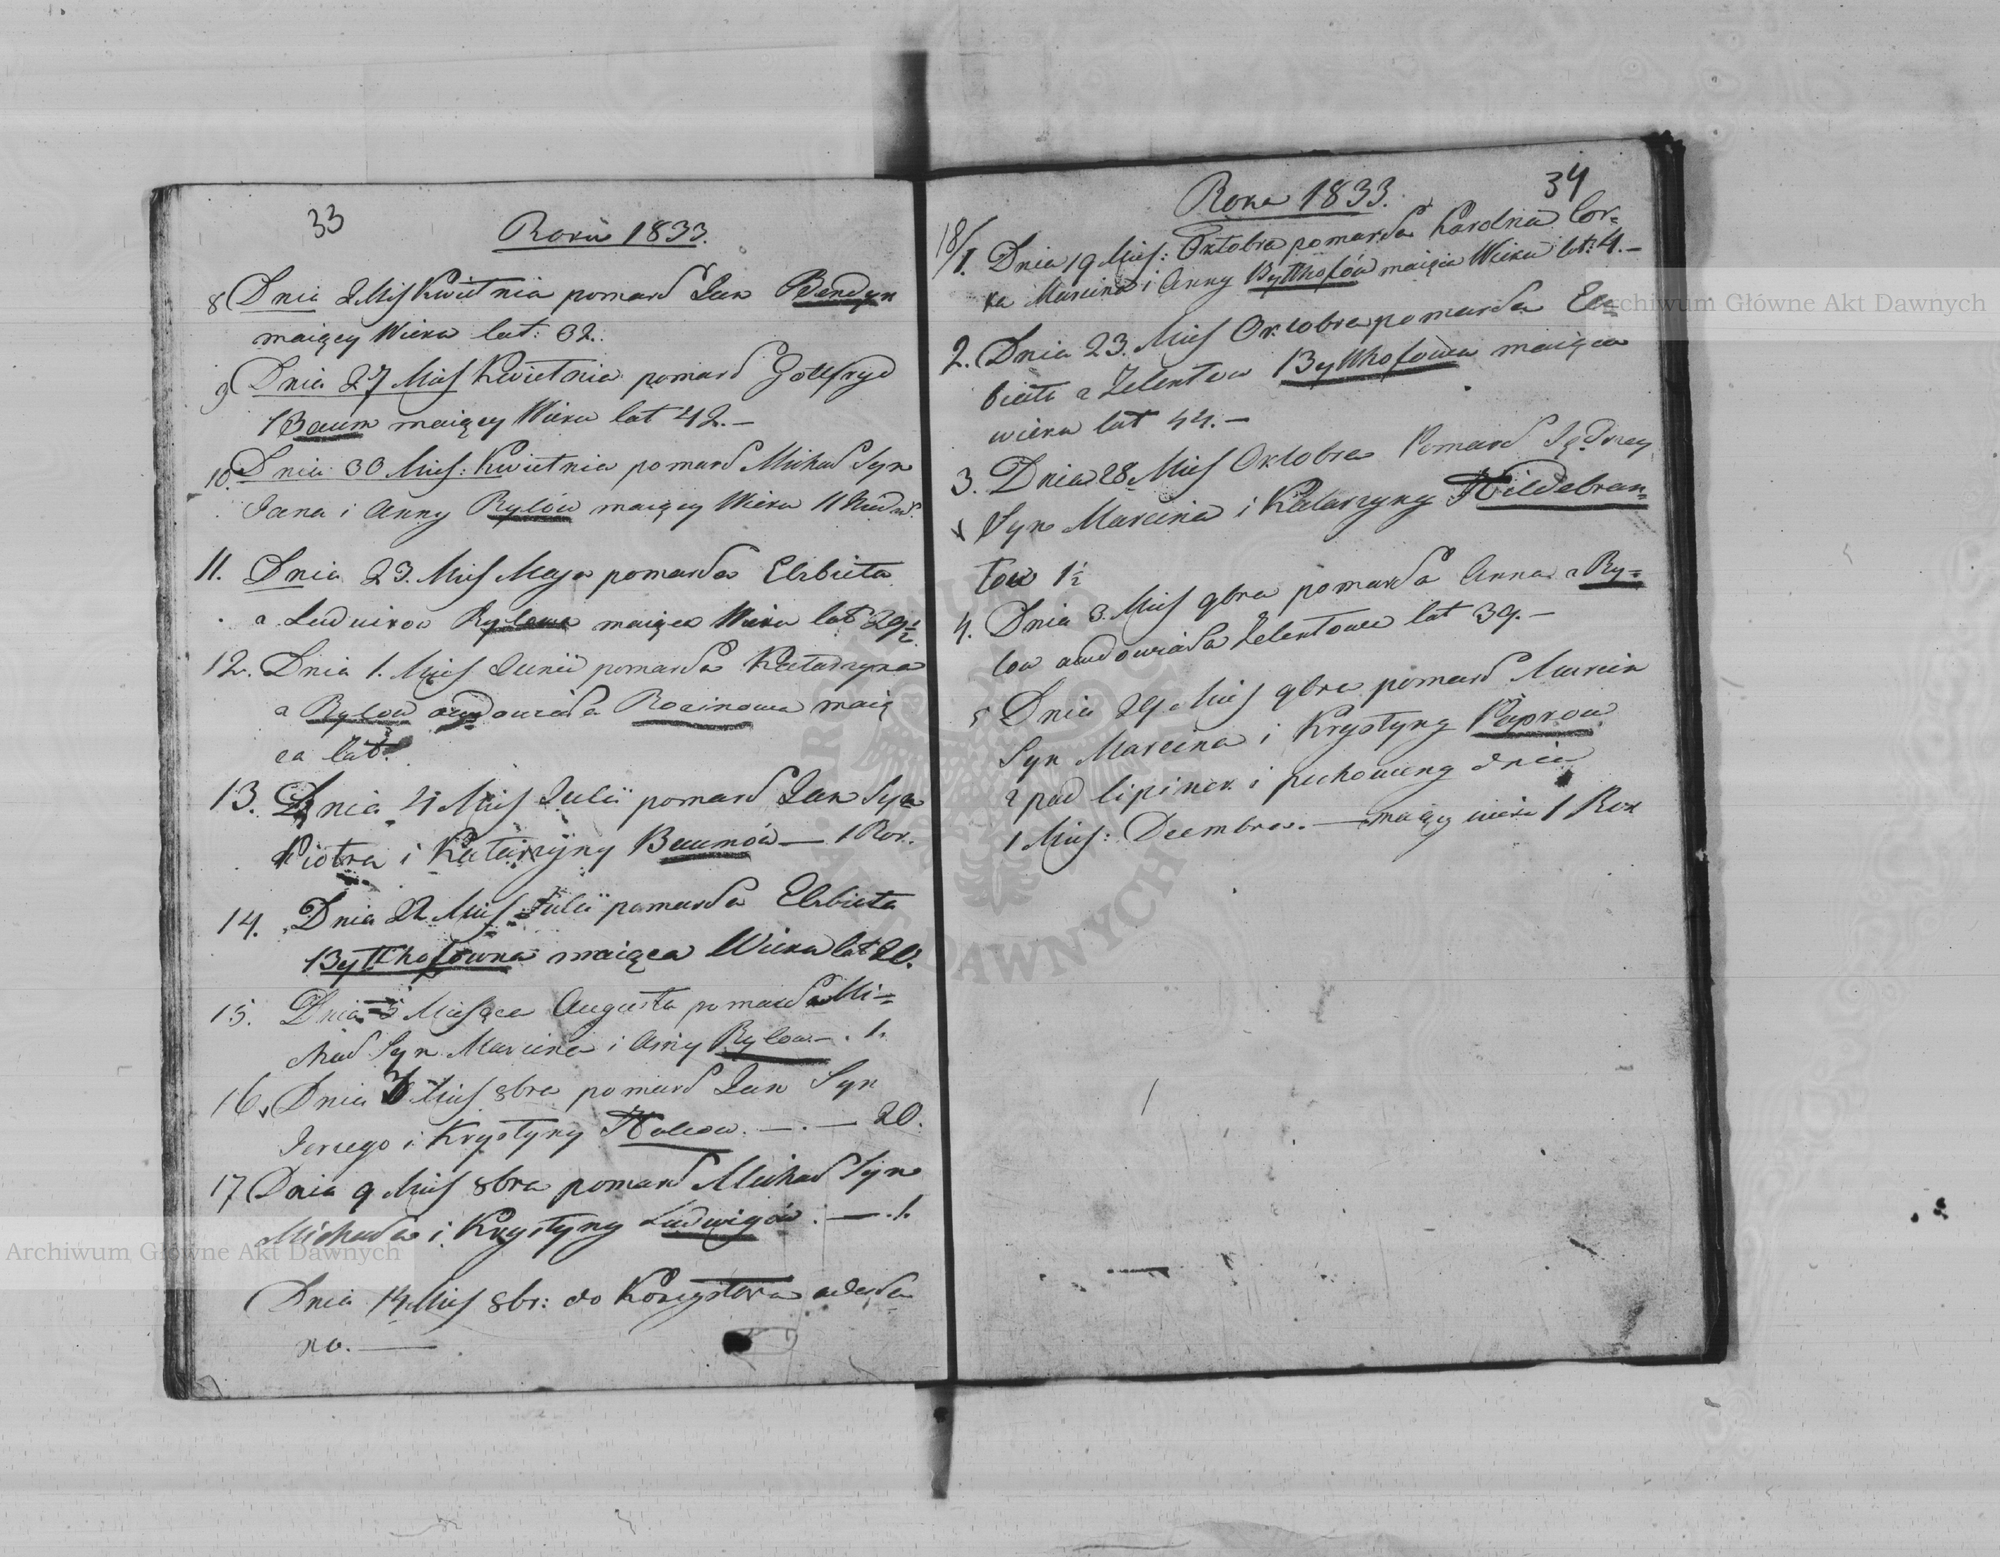 33
Roku 1833.
8 Dnia 2 Mis Kwietnia pomarł Jan Bendyn
maiący Wieku lat: 32.
9 Dnia 27 Mies Kwietnia pomarł Gottfryd
Baum maiący Wieku lat 42.—
10. Dnia 30 Mies: Kwietnia pomarł Michał Syn
Jana i Anny Rylów maiący Wieku 11
11. Dnia 23. Mies Maja pomarła Elzbieta
a Ludwikow Rylowa maiąca Wieku lat 29½
12. Dnia 1. Mies Junii pomarła Katarzyna
z Rylow owdowiała maią
ca lat
13. Dnia 4 Mies Julii pomarł Jan Syn
Piotra i Katarzyny Baumów — 1 Rok.
14. Dnia 22 Mies Julii pomarła Elzbieta
Bytthofowna maiąca Wieku lat 20.
15. Dnia 5 Miesąca Augusta pomarł Mi=
chał Syn Marcina i Anny Rylow. — . 1.
16. Dnia Mies 8bra pomarł Jan Syn
Jerzego i Krystyny — . — 20.
17 Dnia 9 Mies 8bra pomarł Michał Syn
Michała i Krystyny Ludwigów. — . 1.
Dnia 14 Mies 8br: do Konsystorza odesła
no. —
34
Roku 1833.
18/1. Dnia 19 Mies: Oktobra pomarła Karolina Cor=
ka Marcina i Anny Bytthofów maiąca Wieku lat: 4.—
2. Dnia 23. Mies Oktobra pomarła Elz=
bieta z Zelentow Bytthofowa maiąca
wieku lat 44.—
3. Dnia 28 Mies Oktobra Pomarł Jędrzey
Syn Marcina i Katarzyny Hildebran=
tow 1½
4. Dnia 3. Mies 9bra pomarła Anna z Ry=
low owdowiała Zelentowa lat 39.—
5 Dnia 29 Mies 9bra pomarł Marcin
Syn Marcina i Krystyny
z pod lipinek i pochowany dnia
1 Mies: Decembra. — maiący wieku 1 Rok
Archiwum Główne Akt Dawnych
Archiwum Główne Akt Dawnych